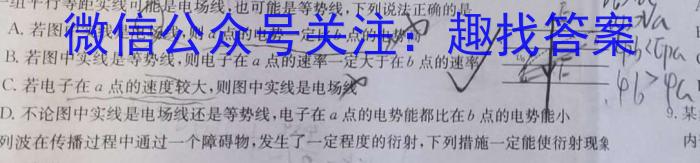 一组平行等距实线可能是电场线,也可能是等势线,下列说法正确的是
A. 若图 a点的电势一定比b点的电势
微信公众号关注:趣找答案
B. 若图中实线是等势线,则电子在a点的速率一定大于在b点的速率
C. 若电子在a点的速度较大,则图中实线是电场线
D. 不论图中实线是电场线还是等势线,电子在a点的电势能都比在b点的电势能小
列波在传播过程中通过一个障碍物,发生了一定程度的衍射,下列措施一定能使衍射现象
φb>φa
9. 某
内